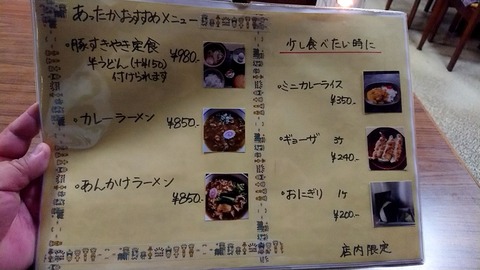 あったかおすすめメニュー
・豚すきやき定食 ¥980.-
半うどん(+¥150)
付けられます
・カレーラーメン ¥850.-
・あんかけラーメン
¥850.-
少し食べたい時に
・ミニカレーライス
¥350.-
・ギョーザ 3ヶ
¥240.-
・おにぎり 1ヶ
¥200.-
店内限定